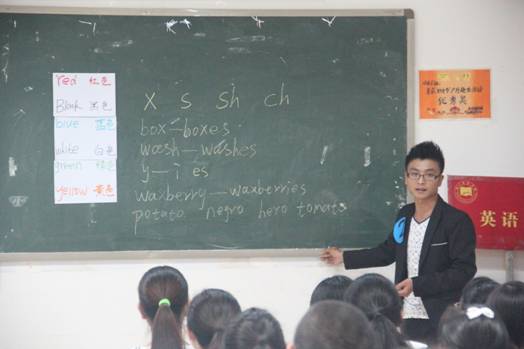 red 红色
Black 黑色
blue 蓝色
white 白色
green 绿色
yellow 黄色
x s sh ch
box—boxes
wash—washes
y—i es
waxberry—waxberries
potato negro hero tomato
优秀奖
英语